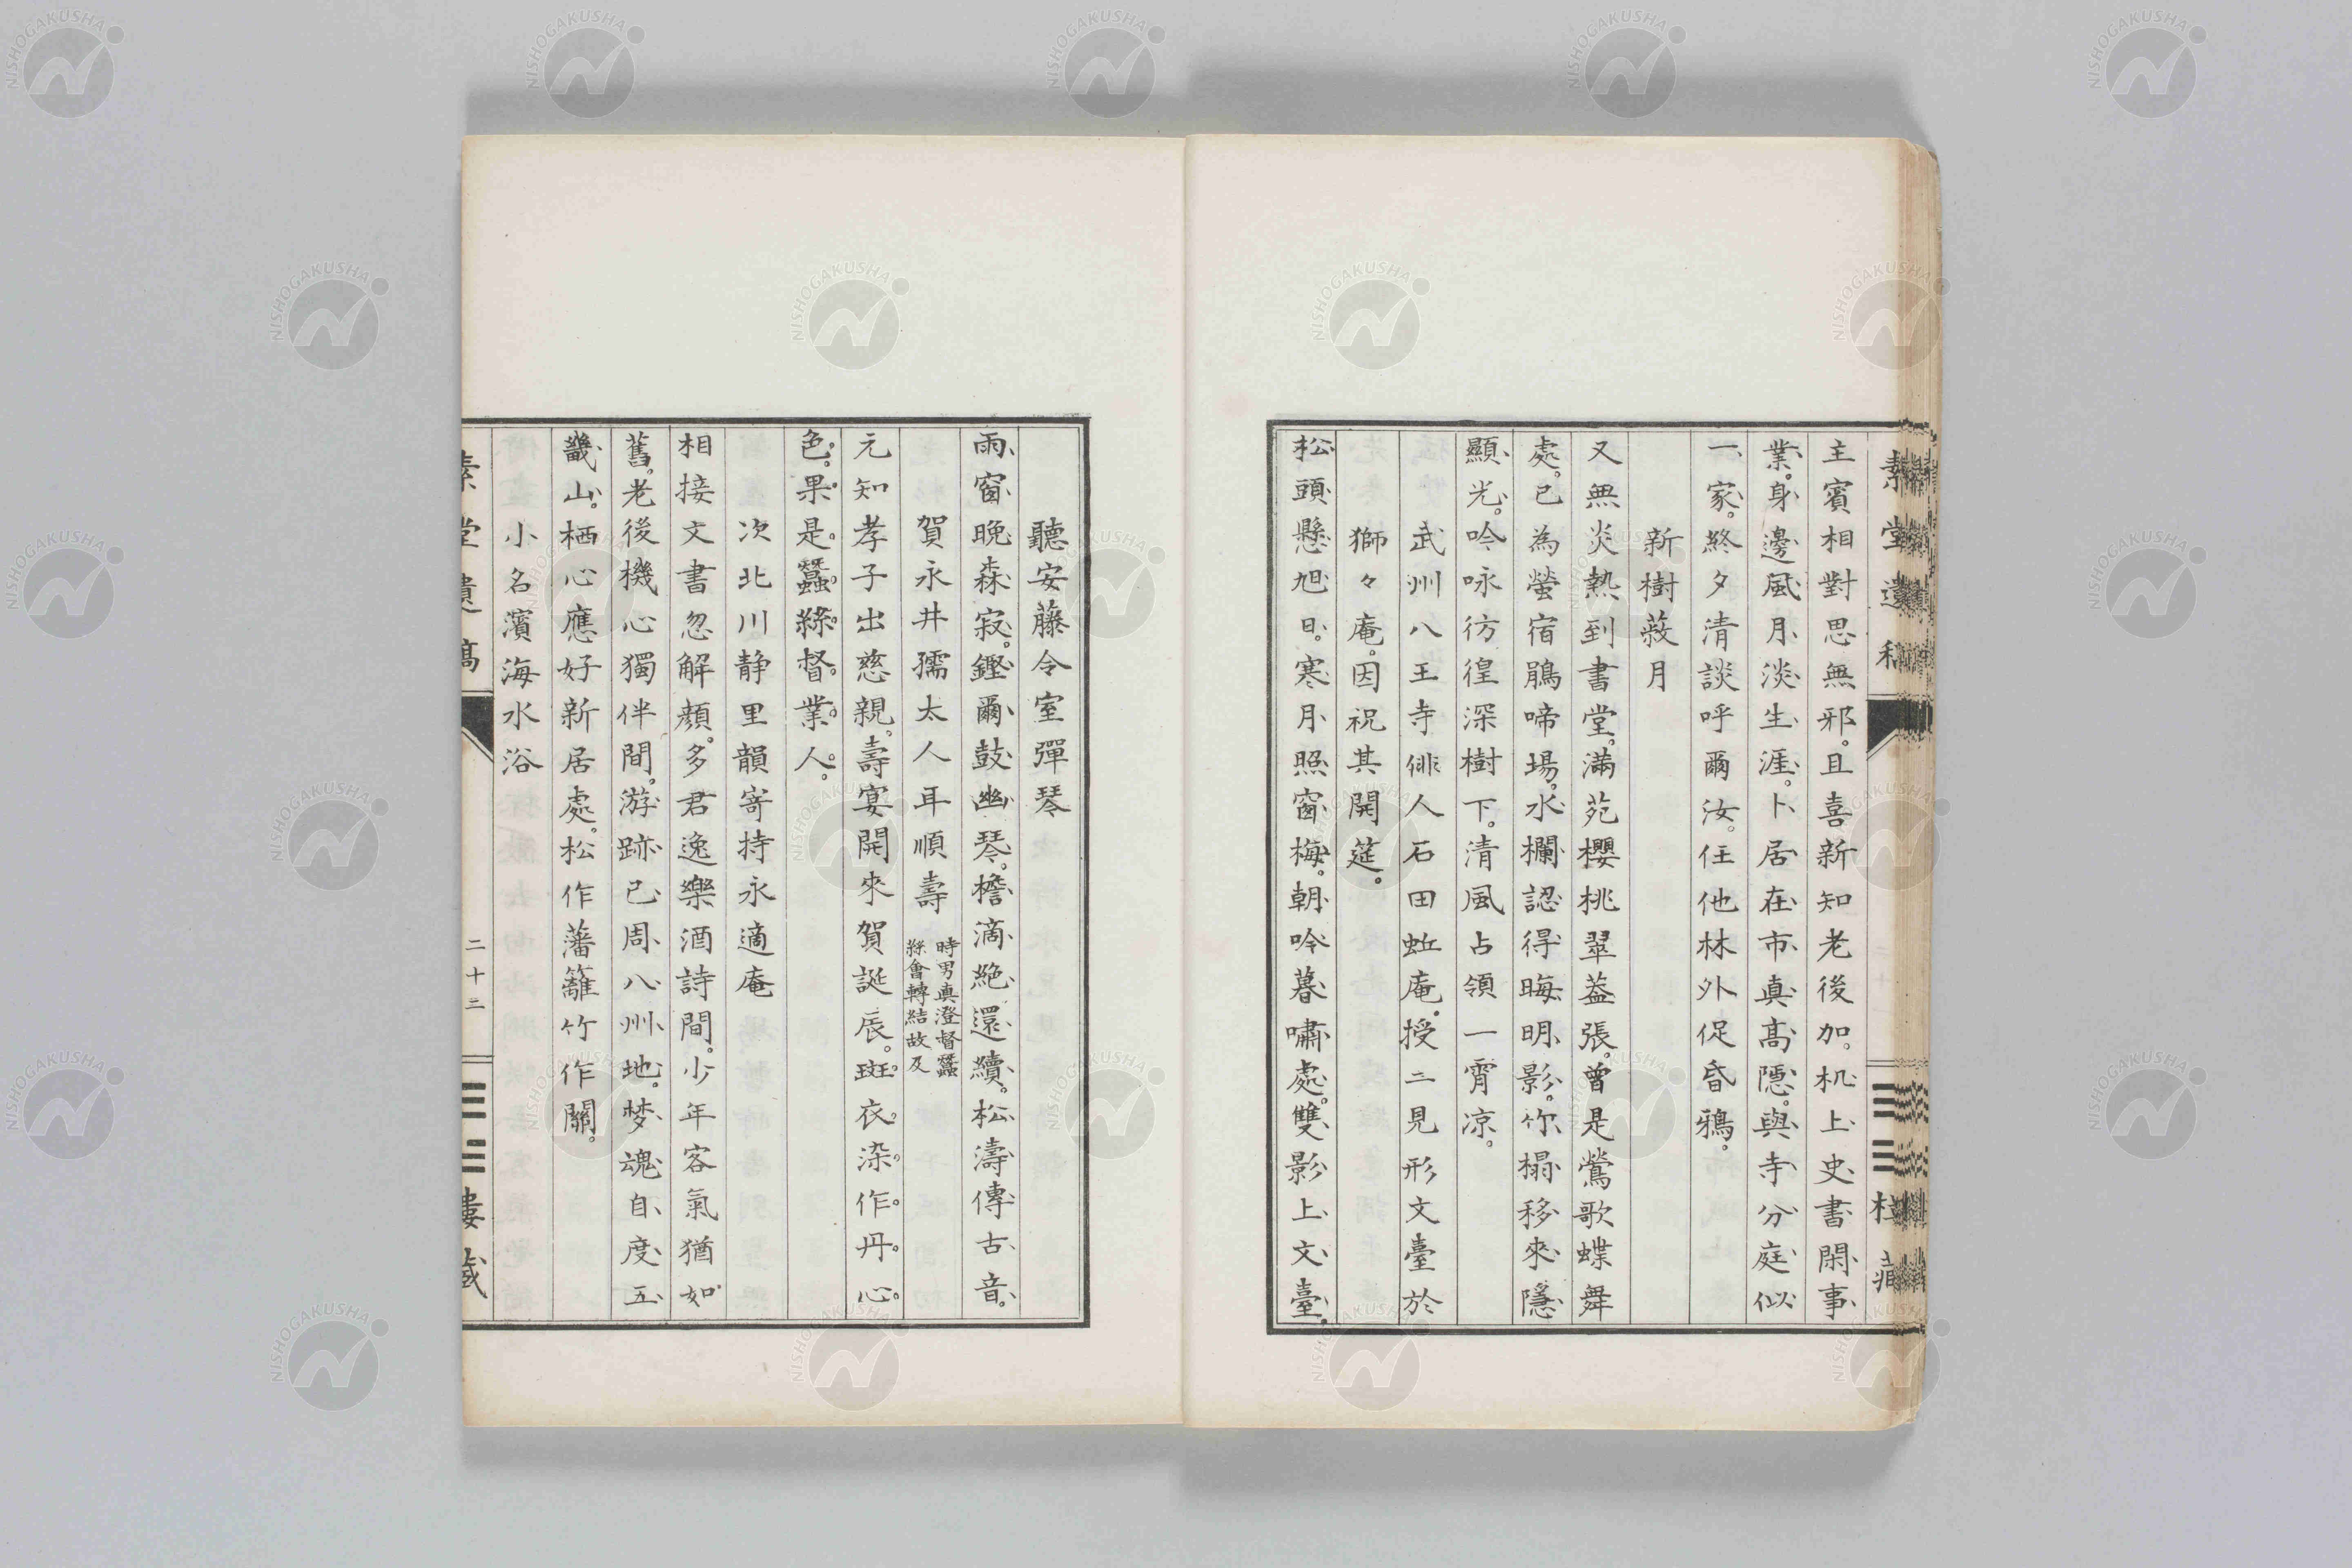 主賓相對思無邪。且喜新知老後加。机上史書閑事
業。身邊風月淡生涯。卜居在市真高隱。與寺分庭似
一家。終夕清談呼爾汝。任他林外促昏鴉。
新樹蔽月
又無炎熱到書堂。滿苑櫻桃翠蓋張。曾是鶯歌蝶舞
處。已為螢宿鵑啼場。水欄認得晦明影。竹榻移來隱
顯光。吟咏彷徨深樹下。清風占領一宵凉。
武州八王寺俳人石田蚯庵。授二見形文臺於
獅々庵。因祝其開筵。
松頭懸旭日。寒月照窗梅。朝吟暮嘯處。雙影上文臺。
聽安藤令室彈琴
雨窗晚森寂。鏗爾鼓幽琴。檐滴絶還續。松濤傳古音。
賀永井孺太人耳順壽 時男真澄督蠶
絲會轉結故及
元知孝子出慈親。壽宴開來賀誕辰。斑衣染作丹心
色。果是蠶絲督業人。
次北川静里韻寄持永適庵
相接文書忽解顏。多君逸樂酒詩間。少年客氣猶如
舊。老後機心獨伴間。游跡已周八州地。梦魂自度五
畿山。栖心應好新居處。松作藩籬竹作關。
小名濱海水浴
素堂遺稿
二十二
三三樓藏
NISHOGAKUSHA